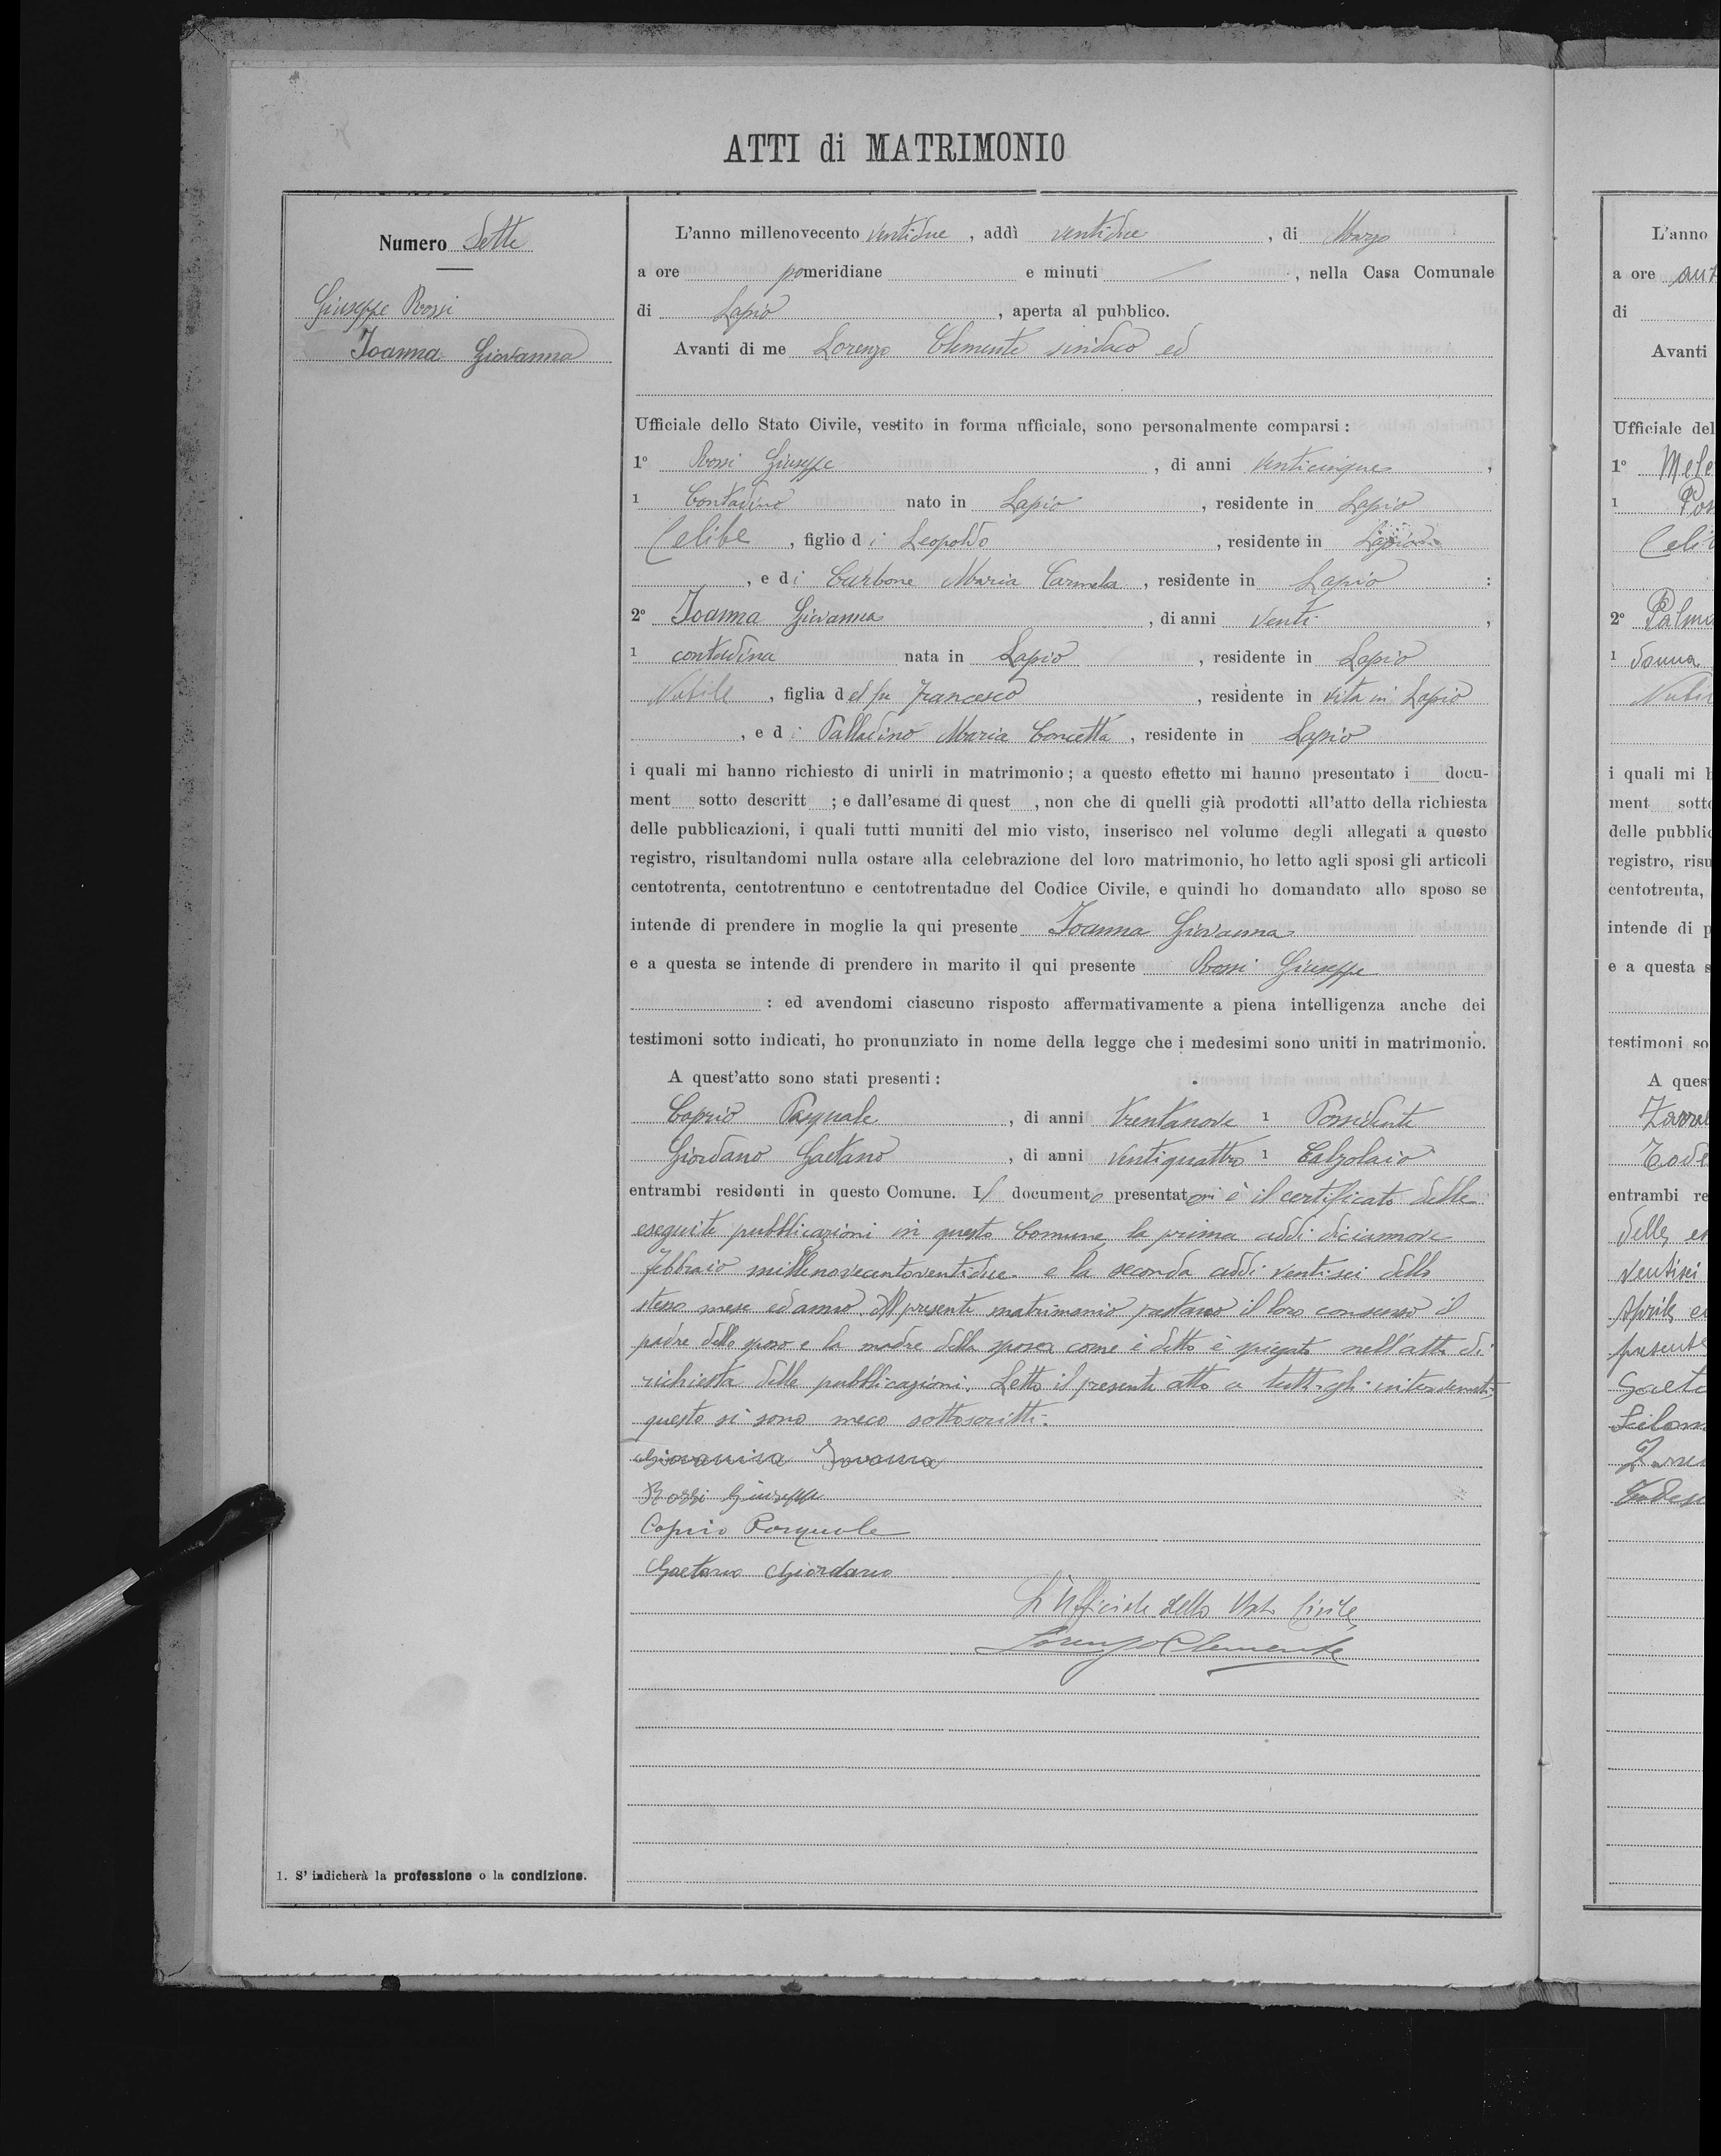 ATTI di MATRIMONIO
Numero Sette
Giuseppe Rossi
Ioanna Giovanna
L'anno millenovecento ventidue, addì ventidue, di Marzo
a ore pomeridiane e minuti, nella Casa Comunale
di Lapio, aperta al pubblico.
Avanti di me Lorenzo Clemente sindaco ed
Ufficiale dello Stato Civile, vestito in forma ufficiale, sono personalmente comparsi:
1° Rossi Giuseppe, di anni venticinque,
1 Contadino nato in Lapio, residente in Lapio
Celibe, figlio di Leopoldo, residente in Lapio
, e di Carbone Maria Carmela, residente in Lapio:
2° Ioanna Giovanna, di anni venti,
1 contadina nata in Lapio, residente in Lapio
Nubile, figlia del fu Francesco, residente in vita in Lapio
, e di Palladino Maria Concetta, residente in Lapio
i quali mi hanno richiesto di unirli in matrimonio; a questo effetto mi hanno presentato i docu-
ment sotto descritt; e dall'esame di quest, non che di quelli già prodotti all'atto della richiesta
delle pubblicazioni, i quali tutti muniti del mio visto, inserisco nel volume degli allegati a questo
registro, risultandomi nulla ostare alla celebrazione del loro matrimonio, ho letto agli sposi gli articoli
centotrenta, centotrentuno e centotrentadue del Codice Civile, e quindi ho domandato allo sposo se
intende di prendere in moglie la qui presente Ioanna Giovanna
e a questa se intende di prendere in marito il qui presente Rossi Giuseppe
: ed avendomi ciascuno risposto affermativamente a piena intelligenza anche dei
testimoni sotto indicati, ho pronunziato in nome della legge che i medesimi sono uniti in matrimonio.
A quest'atto sono stati presenti:
Caprio Pasquale, di anni trentanove 1 Possidente
Giordano Gaetano, di anni ventiquattro 1 Calzolaio
entrambi residenti in questo Comune. Il documento presentatomi è il certificato delle
eseguite pubblicazioni in questo Comune la prima addì diciannove
febbraio millenovecentoventidue e la seconda addì ventisei dello
stesso mese ed anno. Al presente matrimonio prestano il loro consenso il
padre dello sposo e la madre della sposa come è detto è spiegato nell'atto di
richiesta delle pubblicazioni. Letto il presente atto a tutti gl'intervenuti,
questo si sono meco sottoscritti.
Giovannina Iovanna
Rossi Giuseppe
Caprio Pasquale
Gaetano Giordano
L'Ufficiale dello Stato Civile
Lorenzo Clemente
1. S'indicherà la professione o la condizione.
L'anno
a ore
di
Avanti
Ufficiale del
1° Mele
1
Celi
2° Palm
1 donna
Nubi
i quali mi h
ment sotto
delle pubblic
registro, risu
centotrenta,
intende di p
e a questa s
testimoni so
A ques
entrambi re
delle es
ventisei
Aprile e
presente
Gaeta
Filom